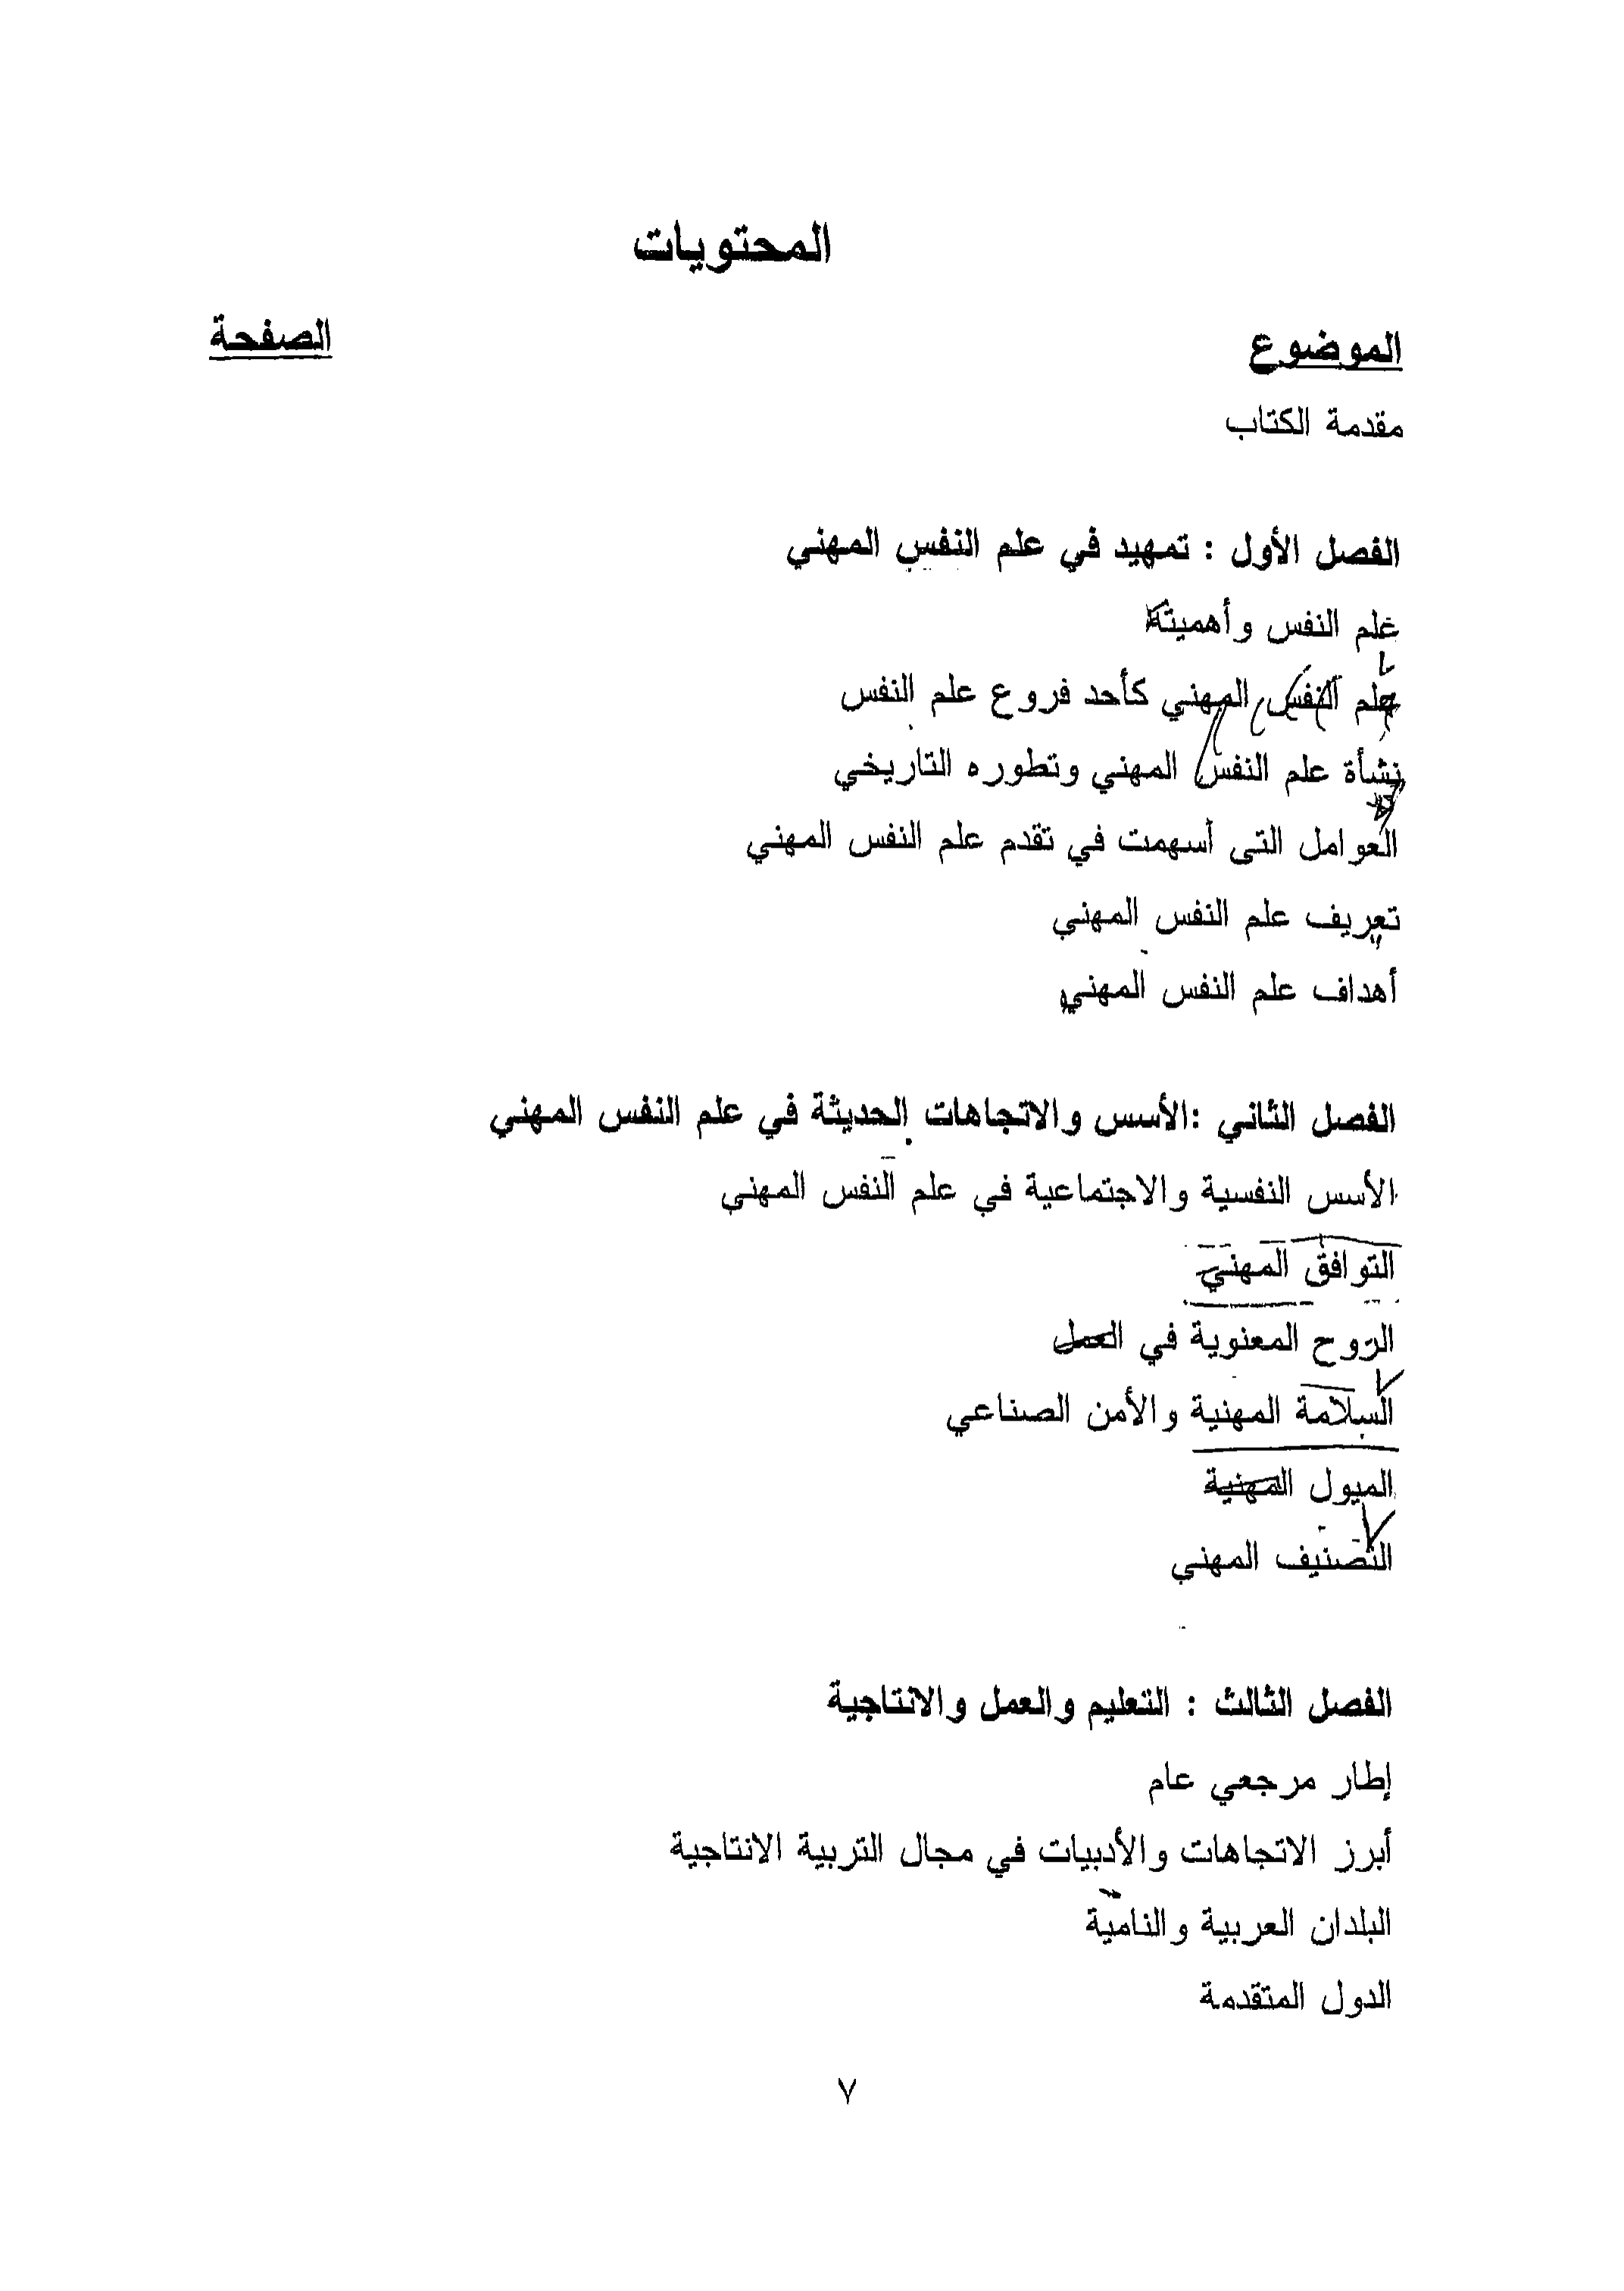 المحتويات
الموضوع الصفحة
مقدمة الكتاب
الفصل الأول : تمهيد في علم النفس المهني
علم النفس وأهميته
علم النفس المهني كأحد فروع علم النفس
نشأة علم النفس المهني وتطوره التاريخي
العوامل التى أسهمت في تقدم علم النفس المهني
تعريف علم النفس المهني
أهداف علم النفس المهني
الفصل الثاني :الأسس والاتجاهات الحديثة في علم النفس المهني
الأسس النفسية والاجتماعية في علم النفس المهني
التوافق المهني
الروح المعنوية في العمل
السلامة المهنية والأمن الصناعي
الميول المهنية
التصنيف المهني
الفصل الثالث : التعليم والعمل والانتاجية
إطار مرجعي عام
أبرز الاتجاهات والأدبيات في مجال التربية الانتاجية
البلدان العربية والنامية
الدول المتقدمة
٧